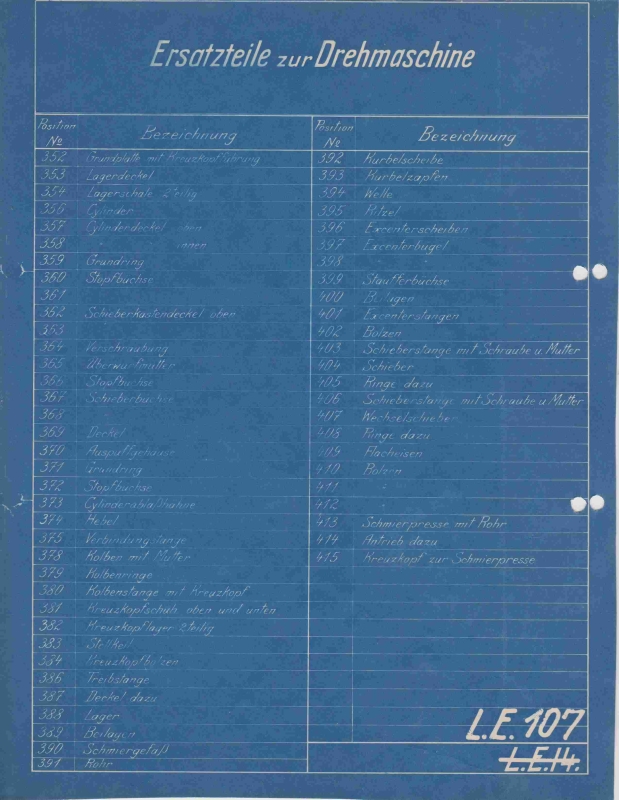 Ersatzteile zur Drehmaschine
Position № Bezeichnung
352 Grundplatte mit Kreuzkopfführung
353 Lagerdeckel
354 Lagerschale 2teilig
356 Cylinder
357 Cylinderdeckel oben
358 " innen
359 Grundring
360 Stopfbuchse
361
362 Schieberkastendeckel oben
363
364 Verschraubung
365 Überwurfmutter
366 Stopfbuchse
367 Schieberbuchse
368
369 Deckel
370 Auspuffgehäuse
371 Grundring
372 Stopfbuchse
373 Cylinderablaßhähne
374 Hebel
375 Verbindungstange
378 Kolben mit Mutter
379 Kolbenringe
380 Kolbenstange mit Kreuzkopf
381 Kreuzkopfschuh oben und unten
382 Kreuzkopflager 2teilig
383 Stellkeil
384 Kreuzkopfbolzen
386 Treibstange
387 Deckel dazu
388 Lager
389 Beilagen
390 Schmiergefäß
391 Rohr
Position № Bezeichnung
392 Kurbelscheibe
393 Kurbelzapfen
394 Welle
395 Ritzel
396 Excenterscheiben
397 Excenterbügel
398 "
399 Staufferbuchse
400 Beilagen
401 Excenterstangen
402 Bolzen
403 Schieberstange mit Schraube u. Mutter
404 Schieber
405 Ringe dazu
406 Schieberstange mit Schraube u. Mutter
407 Wechselschieber
408 Ringe dazu
409 Flacheisen
410 Bolzen
411 "
412 "
413 Schmierpresse mit Rohr
414 Antrieb dazu
415 Kreuzkopf zur Schmierpresse
L.E. 107
L.E.14.